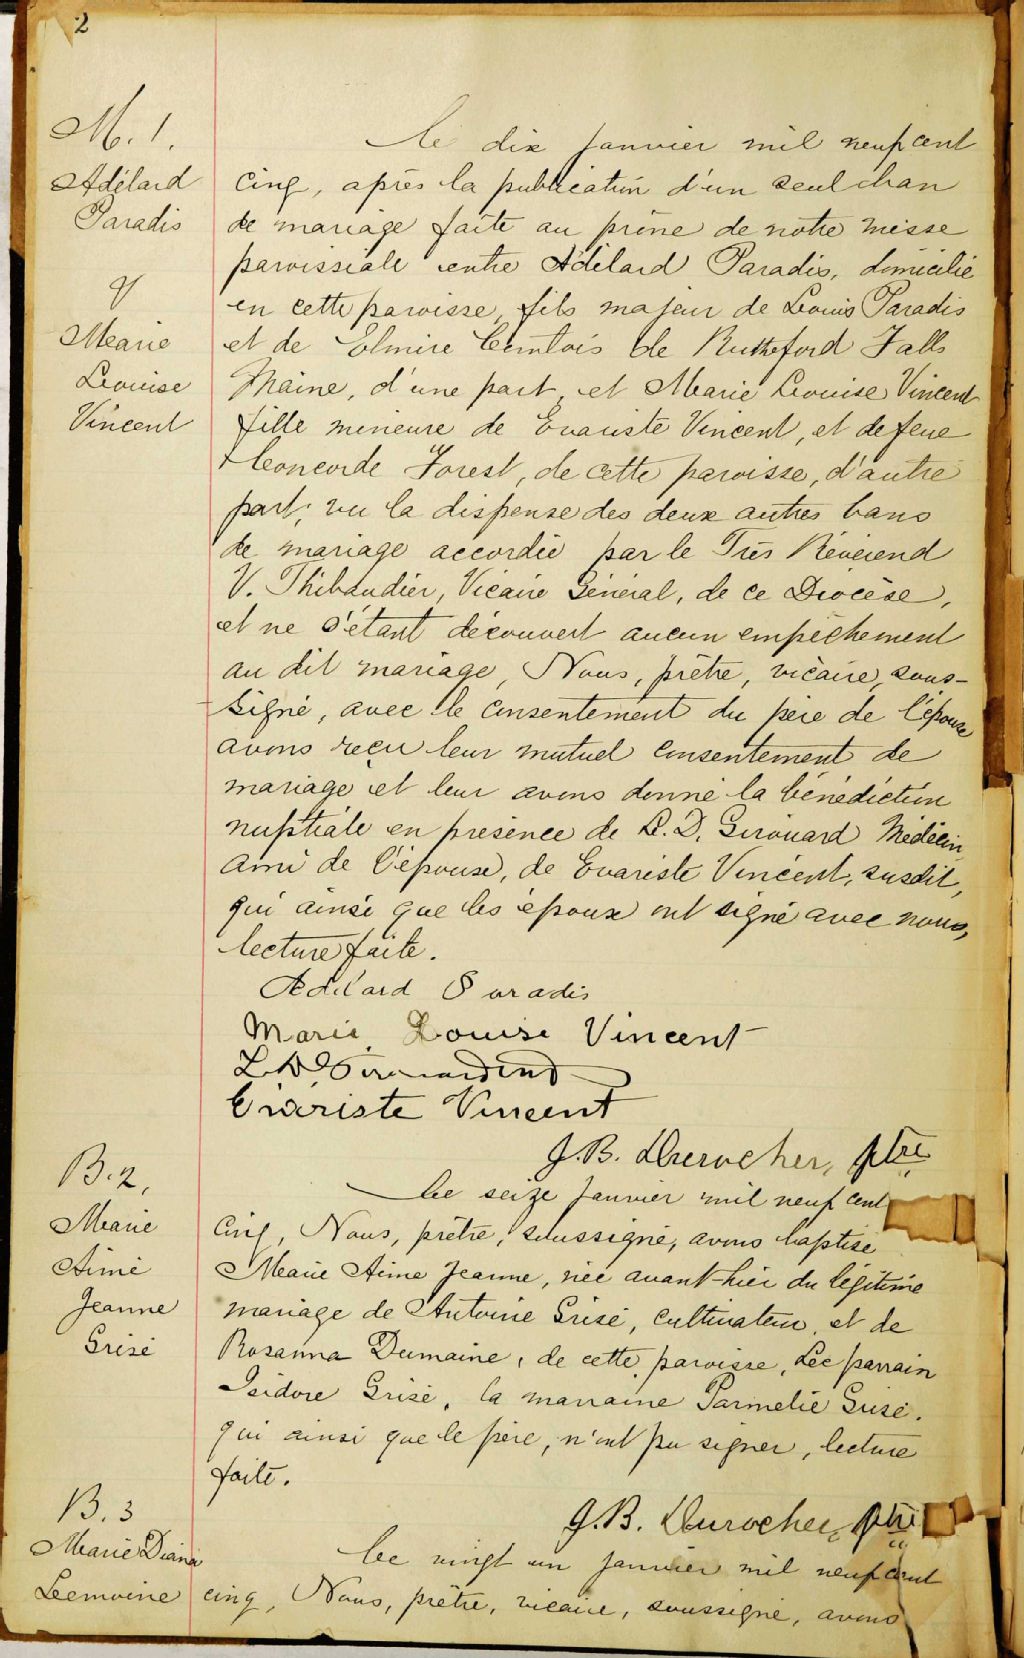 2
M. 1.
Adélard
Paradis
&
Marie
Louise
Vincent
Le dix janvier mil neuf cent
cinq, après la publication d'un seul ban
de mariage faite au prône de notre messe
paroissiale entre Adélard Paradis, domicilié
en cette paroisse, fils majeur de Louis Paradis
et de Elmire Comtois de Rutheford Falls
Maine, d'une part, et Marie Louise Vincent
fille mineure de Evariste Vincent, et de feue
Concorde Forest, de cette paroisse, d'autre
part; vu la dispense des deux autres bans
de mariage accordée par le Très Révérend
V. Thibaudier, Vicaire Général, de ce Diocèse,
et ne s'étant découvert aucun empêchement
au dit mariage, Nous, prêtre, vicaire, sous-
signé, avec le consentement du père de l'épouse
avons reçu leur mutuel consentement de
mariage et leur avons donné la bénédiction
nuptiale en présence de L. D. Girouard Médécin,
ami de l'épouse, de Evariste Vincent, susdit,
qui ainsi que les époux ont signé avec nous,
lecture faite.
Adélard Paradis
Marie Louise Vincent
L. D. Girouard
Evariste Vincent
J. B. Durocher, ptre
B. 2,
Marie
Aimé
Jeanne
Grisé
Le seize janvier mil neuf cent
cinq, Nous, prêtre, soussigné, avons baptisé
Marie Aime Jeanne, née avant-hier du légitime
mariage de Antoine Grisé, cultivateur, et de
Rosanna Dumaine, de cette paroisse, Le parrain
Isidore Grisé, la marraine Parmelie Grisé.
qui ainsi que le père, n'ont pu signer, lecture
faite.
J. B. Durocher, ptre
B. 3
Marie Diana
Lemoine
Le vingt un janvier mil neuf cent
cinq, Nous, prêtre, vicaire, soussigné, avons